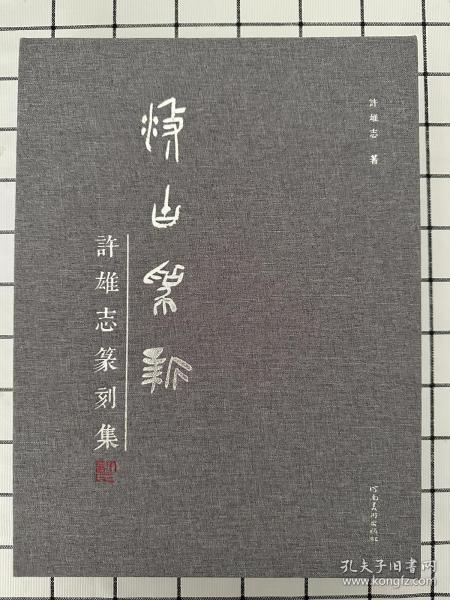 許雄志 著
山
許雄志篆刻集
河南美术出版社
孔夫子旧书网
www.kongfz.com